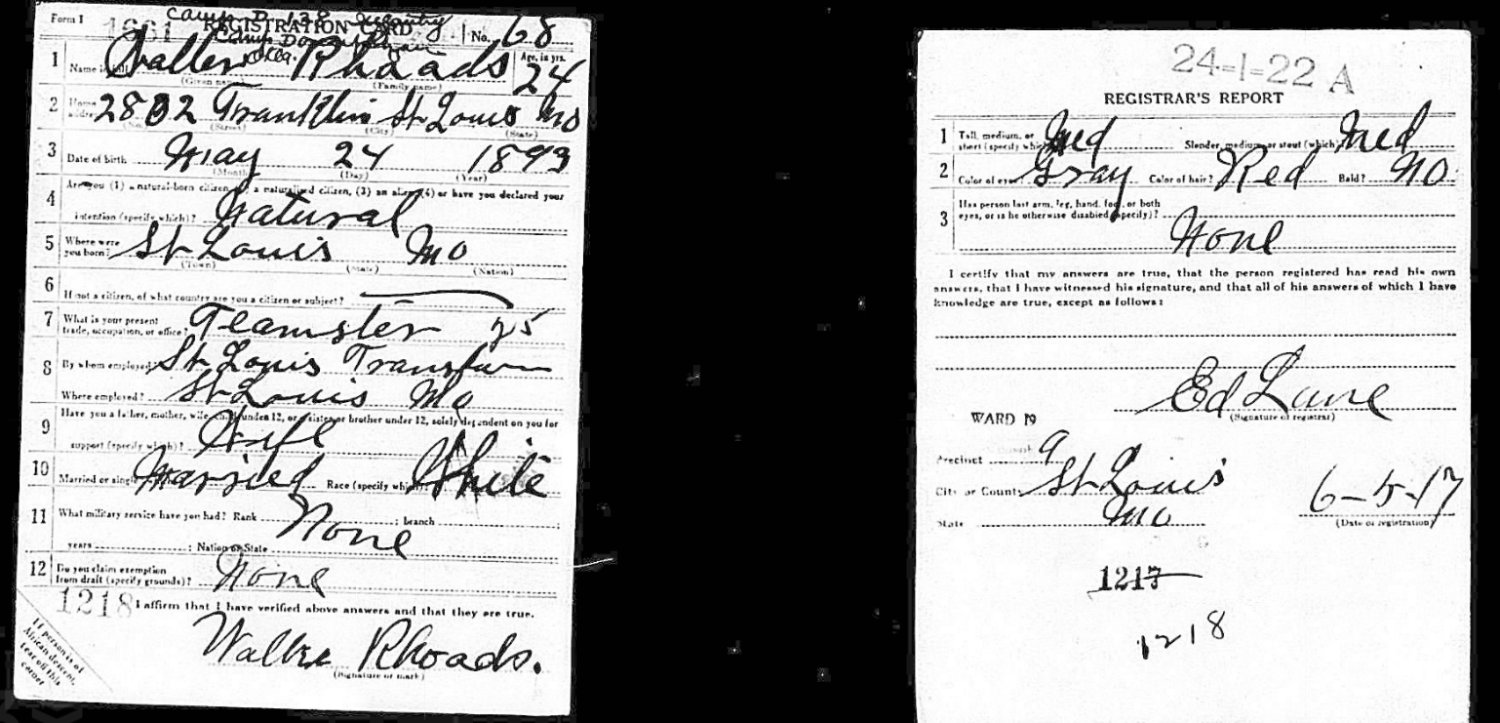 Form 1 1661 REGISTRATION CARD No. 68
Camp D 138 Infantry
Camp Doniphan
Okla.
1 Name in full Walter Rhoads Age, in yrs. 24
(Given name) (Family name)
2 Home address 2802 Franklin St Louis Mo
(No.) (Street) (City) (State)
3 Date of birth May 24 1893
(Month) (Day) (Year)
4 Are you (1) a natural-born citizen, (2) a naturalized citizen, (3) an alien, (4) or have you declared your
intention (specify which)? Natural
5 Where were you born? St Louis Mo
(Town) (State) (Nation)
6 If not a citizen, of what country are you a citizen or subject?
7 What is your present trade, occupation, or office? Teamster 25
8 By whom employed? St Louis Transfer
Where employed? St Louis Mo
9 Have you a father, mother, wife, child under 12, or a sister or brother under 12, solely dependent on you for
support (specify which)? Wife
10 Married or single (which)? Married Race (specify which)? White
11 What military service have you had? Rank None ; branch ;
years ; Nation or State
12 Do you claim exemption from draft (specify grounds)? None
1218 I affirm that I have verified above answers and that they are true.
Walter Rhoads.
(Signature or mark)
If person is of
African descent,
tear off this
corner
24-1-22 A
REGISTRAR'S REPORT
1 Tall, medium, or short (specify which)? Med Slender, medium, or stout (which)? Med
2 Color of eyes? Gray Color of hair? Red Bald? No
3 Has person lost arm, leg, hand, foot, or both
eyes, or is he otherwise disabled (specify)?
None
I certify that my answers are true, that the person registered has read his own
answers, that I have witnessed his signature, and that all of his answers of which I have
knowledge are true, except as follows:
Ed Lane
(Signature of registrar)
WARD 19
Precinct 9
City or County St Louis
State Mo
6-5-17
(Date of registration)
1217
1218